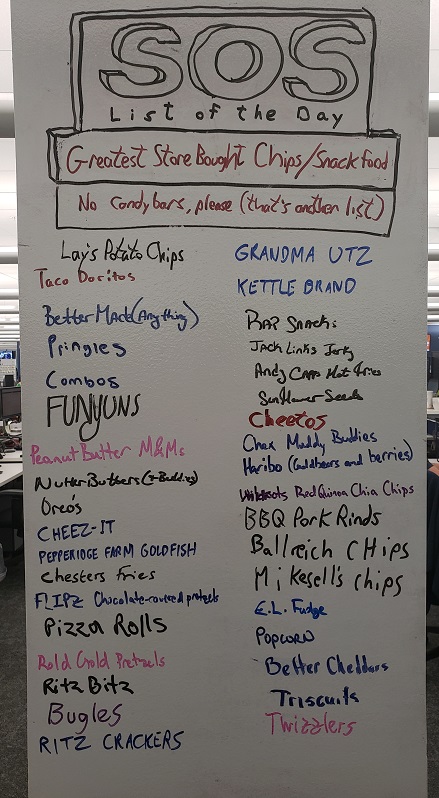 SOS
List of the Day
Greatest Store Bought Chips/Snack food
No candybars, please (that's another list)
Lay's Potato Chips
Taco Doritos
Better Made (Anything)
Pringles
Combos
FUNYUNS
Peanut Butter M&Ms
Nutter Butters (+ Buddies)
Oreo's
CHEEZ-IT
PEPPERIDGE FARM GOLDFISH
Chesters fries
FLIPZ Chocolate-covered pretzels
Pizza Rolls
Rold Gold Pretzels
Ritz Bitz
Bugles
RITZ CRACKERS
GRANDMA UTZ
KETTLE BRAND
BAR SNACKS
Jack Links Jerky
Andy Capp Hot fries
Sunflower Seeds
Cheetos
Chex Muddy Buddies
Haribo (Goldbears and berries)
Red Quinoa Chia Chips
BBQ Pork Rinds
Ballreich CHips
Mikesell's chips
E.L. Fudge
POPCORN
Better Cheddars
Triscuits
Twizzlers